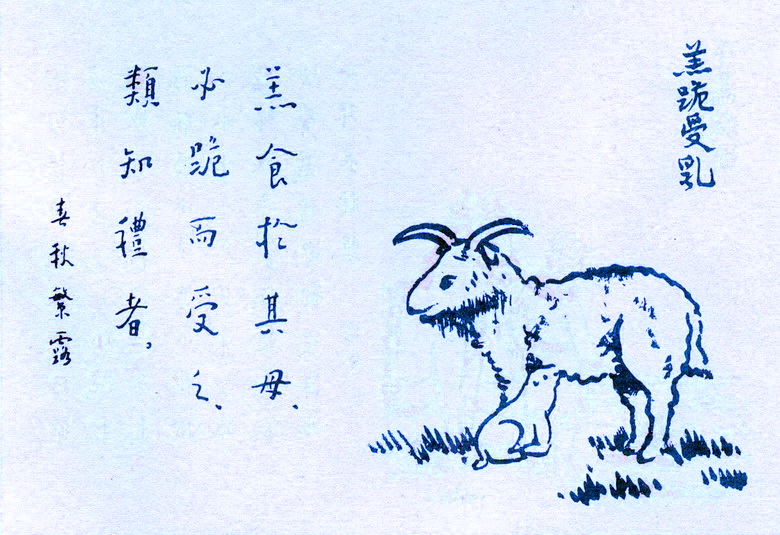 羔跪受乳
羔食於其母、
必跪而受之、
類知禮者。
春秋繁露